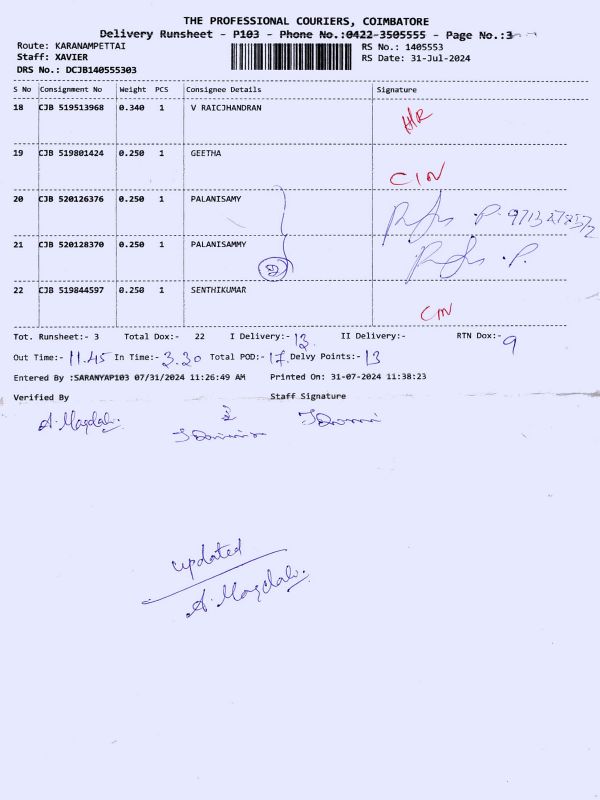 THE PROFESSIONAL COURIERS, COIMBATORE
Delivery Runsheet - P103 - Phone No.:0422-3505555 - Page No.:3
Route: KARANAMPETTAI RS No.: 1405553
Staff: XAVIER RS Date: 31-Jul-2024
DRS No.: DCJB140555303
S No Consignment No Weight PCS Consignee Details Signature
18 CJB 519513968 0.340 1 V RAICJHANDRAN
19 CJB 519801424 0.250 1 GEETHA
20 CJB 520126376 0.250 1 PALANISAMY
21 CJB 520128370 0.250 1 PALANISAMMY
2
22 CJB 519844597 0.250 1 SENTHIKUMAR
Tot. Runsheet:- 3 Total Dox:- 22 I Delivery:- 13 II Delivery:- RTN Dox:- 9
Out Time:- 11.45 In Time:- 3.30 Total POD:- 17 Delvy Points:- 13
Entered By :SARANYAP103 07/31/2024 11:26:49 AM Printed On: 31-07-2024 11:38:23
Verified By Staff Signature
A. Magdali
updated
A. Magdali